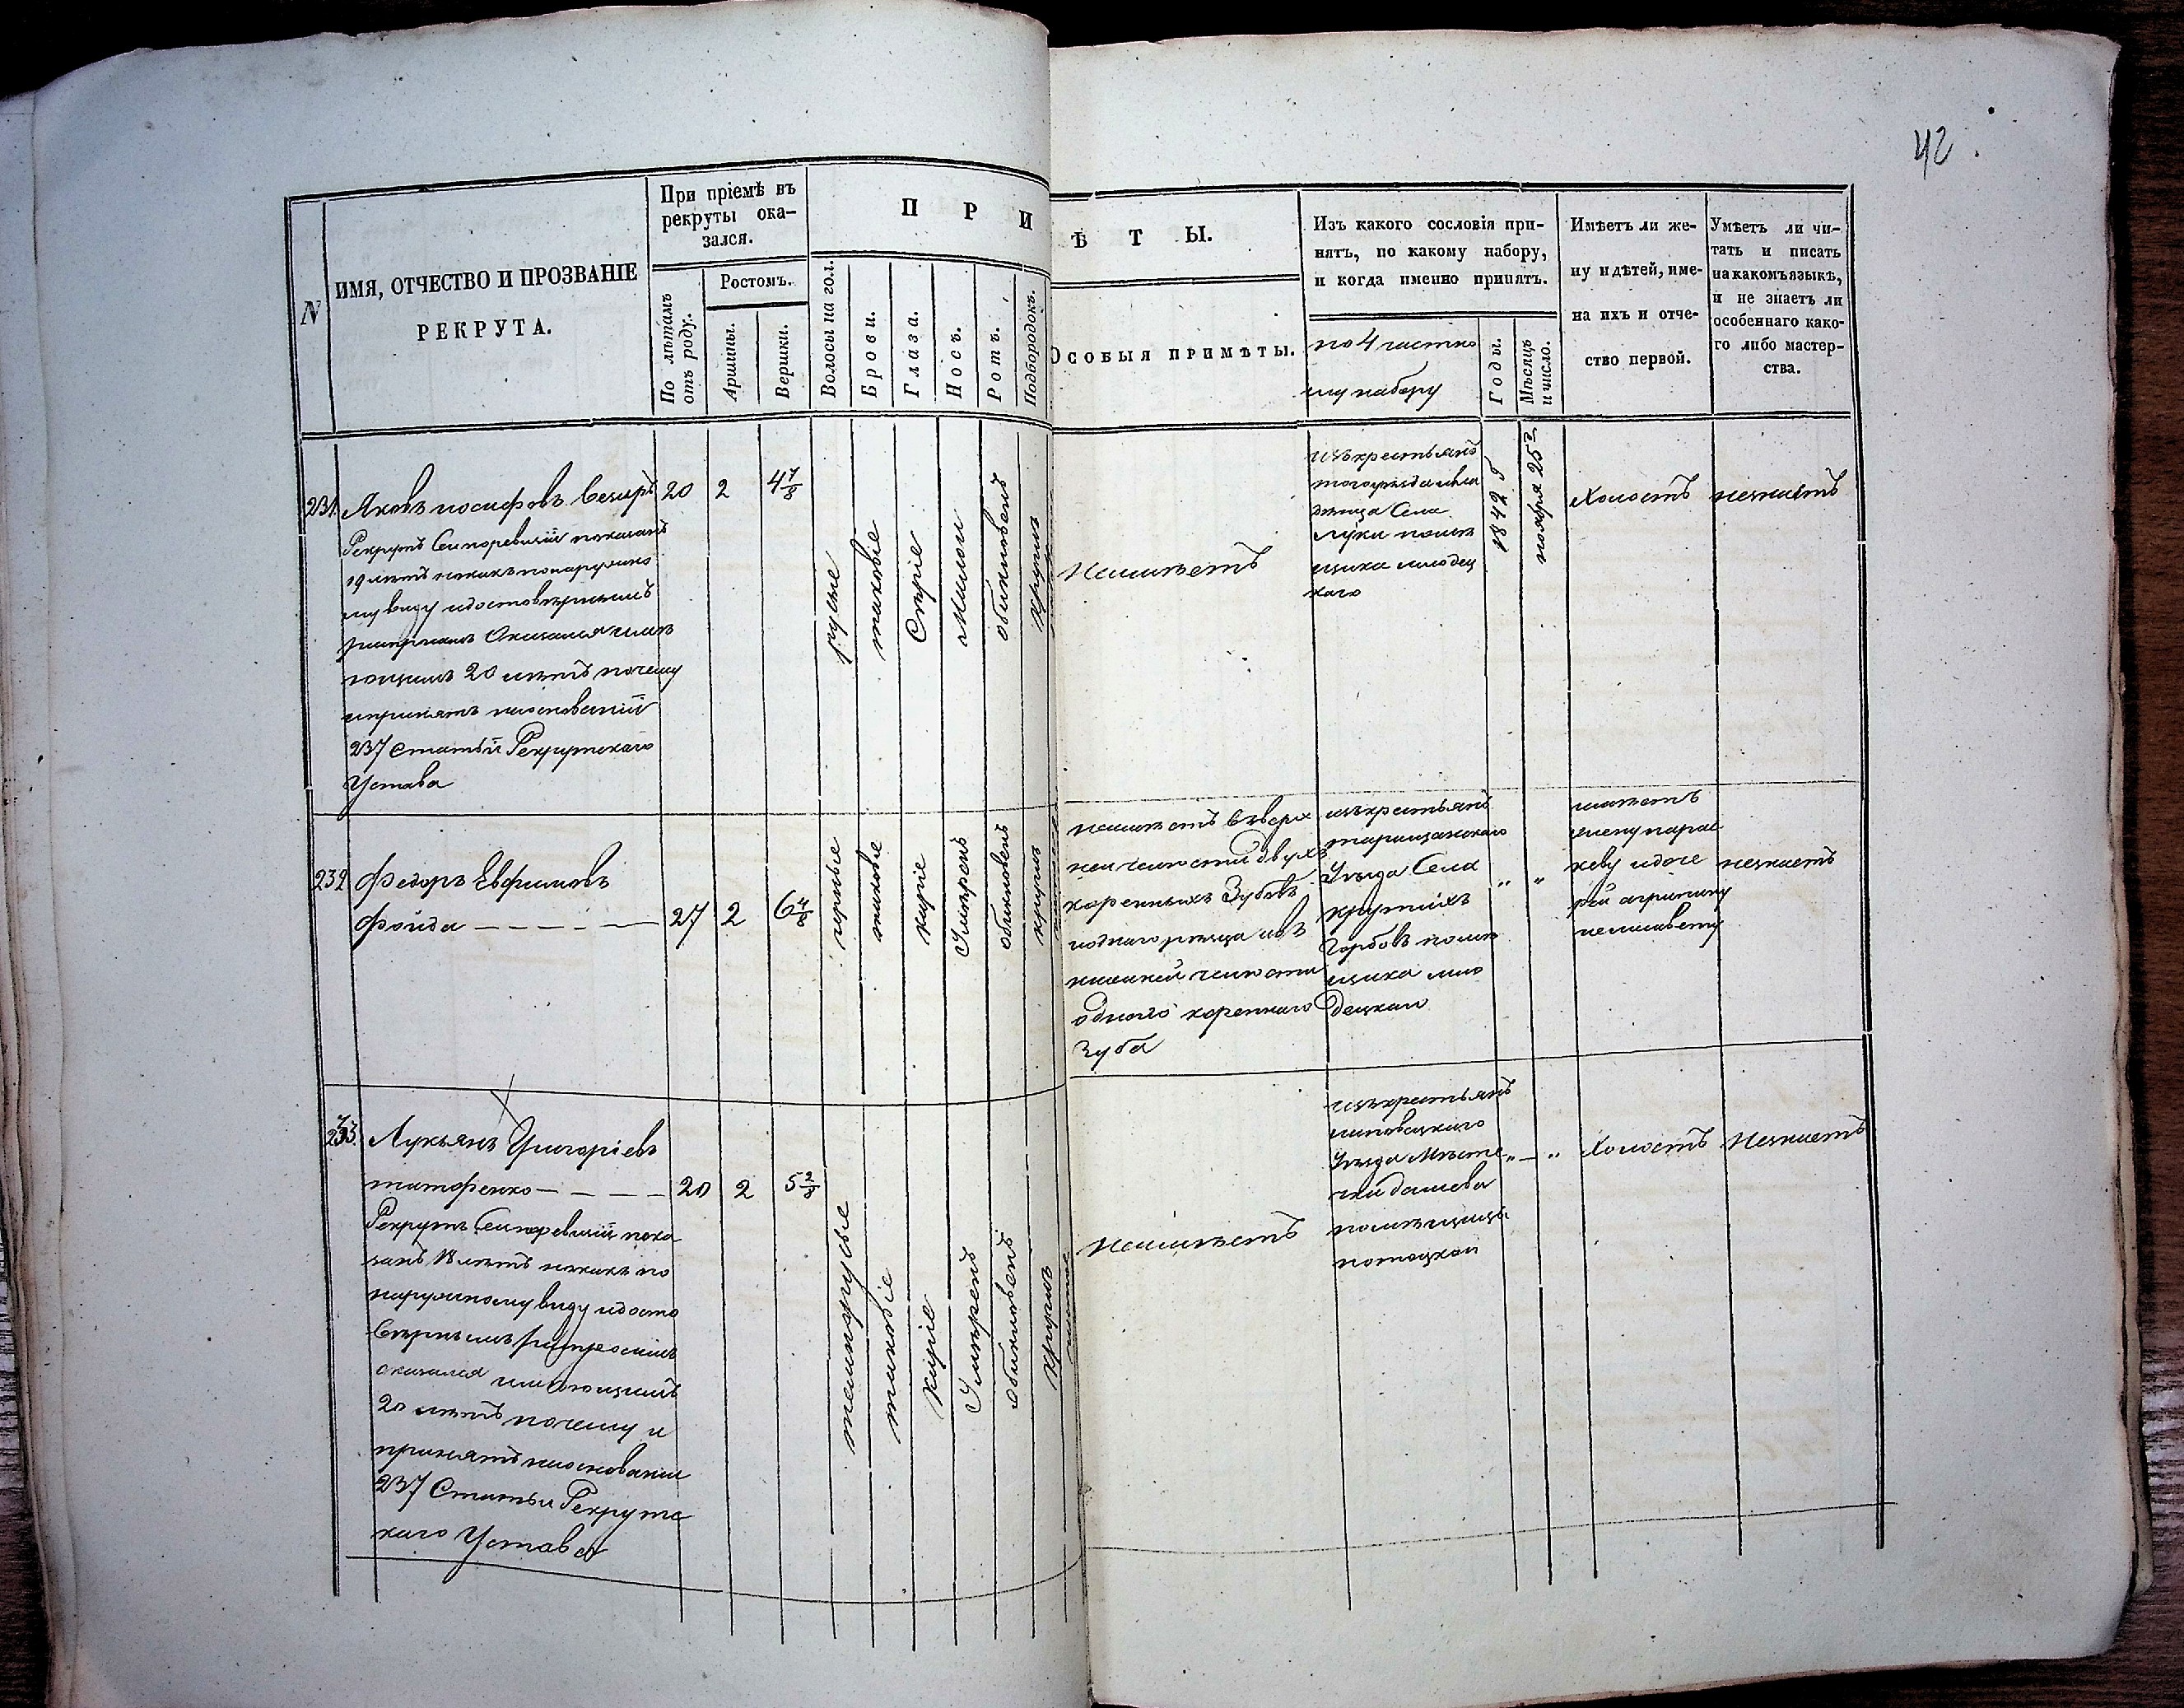 42.
N
ИМЯ, ОТЧЕСТВО И ПРОЗВАНІЕ
РЕКРУТА.
При пріемѣ въ
рекруты ока-
зался.
По лѣтамъ
отъ роду.
Ростомъ.
Аршины.
Вершки.
П Р И
Ѣ Т Ы.
Волосы на гол.
Брови.
Глаза.
Носъ.
Ротъ.
Подбородокъ.
ОСОБЫЯ ПРИМѢТЫ.
Изъ какого сословія при-
нятъ, по какому набору,
и когда именно принятъ.
по 4 частно
му набору
Годы.
Мѣсяцъ
и число.
Имѣетъ ли же-
ну и дѣтей, име-
на ихъ и отче-
ство первой.
Умѣетъ ли чи-
тать и писать
на какомъ языкѣ,
и не знаетъ ли
особеннаго како-
го либо мастер-
ства.
231
Яковъ иосифовъ
Рекрутъ Сей поревизіи показанъ
19 лѣтъ нокакъ понаружно
му виду идостовѣрнымъ
оказался имѣ
ющимъ 20 лѣтъ почему
ипринятъ наоснованіи
237 статьи Рекрутскаго
Устава
20
2
4 7/8
русые
таковые
Сѣріе
Малой
обикновенъ
круглъ
Неимѣетъ
изъкрестьянъ
тогоуѣзда
Села
Луки помѣ
щика млодец
каго
1842 г
ноября 25
Холостъ
незнаетъ
232
Федоръ Евфимовъ
Фойда
27
2
6 4/8
чорные
таковые
каріе
Умѣренъ
обикновенъ
круглъ
неимѣетъ вверх
ней челюсти двухъ
коренныхъ Зубовъ
иоднаго рѣзца ивъ
нижней челюсти
одного кореннаго
Зуба
изъкрестьянъ
таращанскаго
Уѣзда Села
крутыхъ
Горбовъ помѣ
щика мло
децкаго
" "
имѣетъ
жену парас
кеву идоче
рей агрипину
иелисавету
незнаетъ
233.
Лукьянъ Григоріевъ
титоренко
Рекрутъ Сей поревизіи пока
занъ 18 лѣтъ нокакъ по
наружному виду идосто
вѣрнымъ
оказался имѣющимъ
20 лѣтъ почему и
принятъ наоснованіи
237 Статьи Рекрутс
каго Устава
20
2
5 2/8
темнорусые
таковіе
Каріе
Умѣренъ
Обикновенъ
круглъ
Неимѣетъ
изъкрестьянъ
липовецкаго
Уѣзда Мѣсте
чка дашева
помѣщицы
потоцкой
" — "
Холостъ
Незнаетъ